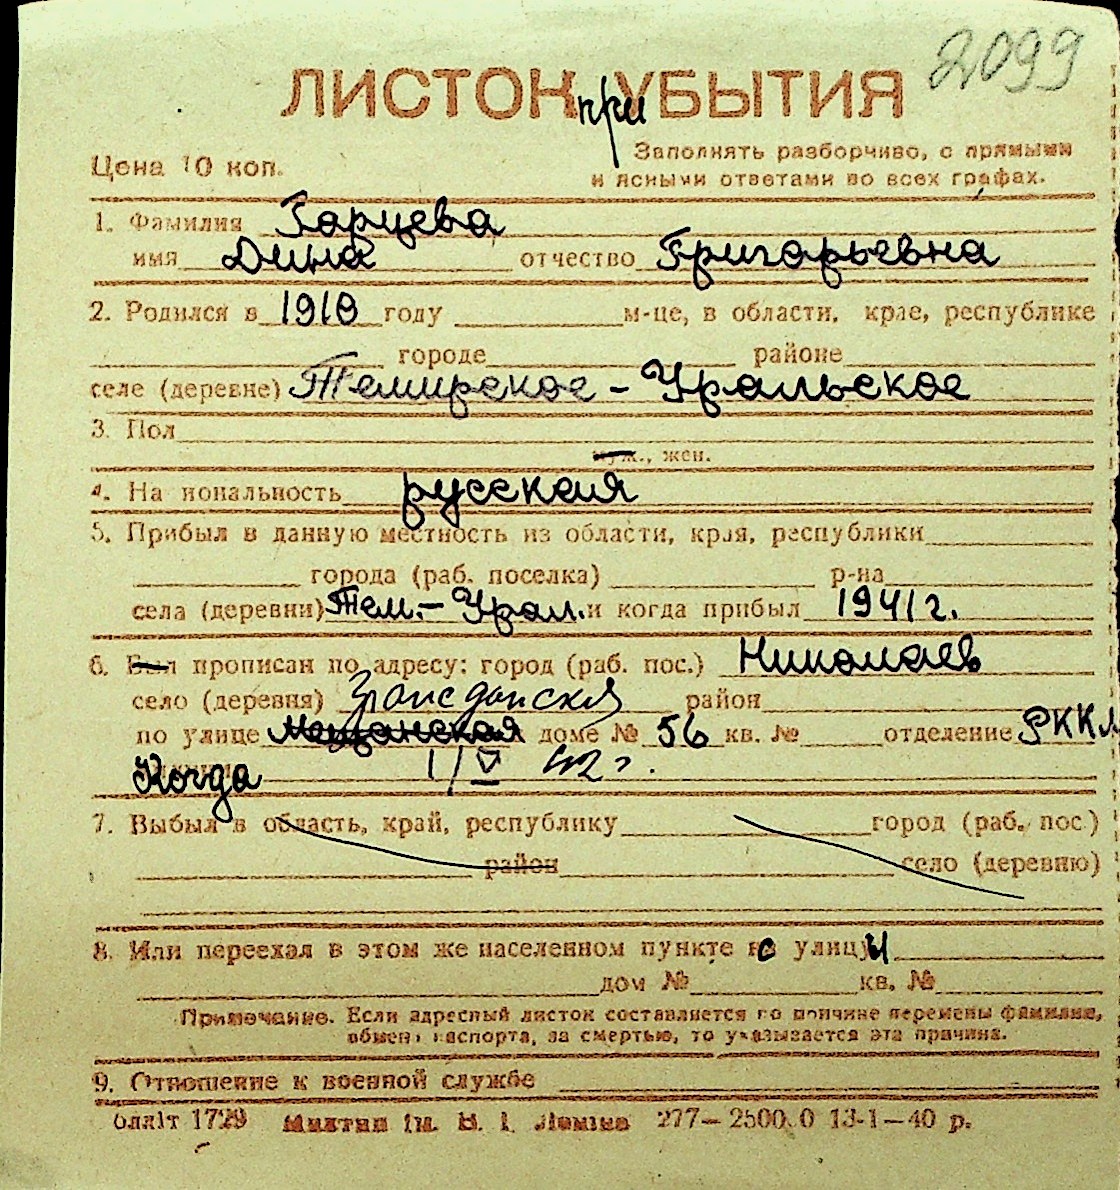 2099
ЛИСТОК при УБЫТИЯ
Цена 10 коп.
Заполнять разборчиво, с прямыми
и ясными ответами во всех графах.
1. Фамилия Зарцева
имя Дина отчество Григорьевна
2. Родился в 1910 году м-це, в области, крае, республике
городе районе
селе (деревне) Темирское - Уральское
3. Пол
муж., жен.
4. На иональность русская
5. Прибыл в данную местность из области, края, республики
города (раб. поселка) р-на
села (деревни) Тем. - Урал. и когда прибыл 1941 г.
6. Был прописан по адресу: город (раб. пос.) Николаев
село (деревня) район
по улице Мещанская доме № 56 кв. № отделение РККМ
Когда 1/V 42 г.
7. Выбыл в область, край, республику город (раб. пос.)
район село (деревню)
8. Или переехал в этом же населенном пункте с улицы
дом № кв. №
Примечание. Если адресный листок составляется по причине перемены фамилии,
обмена паспорта, за смертью, то указывается эта причина.
9. Отношение к военной службе
1729 277—2500.0 13-1—40 р.